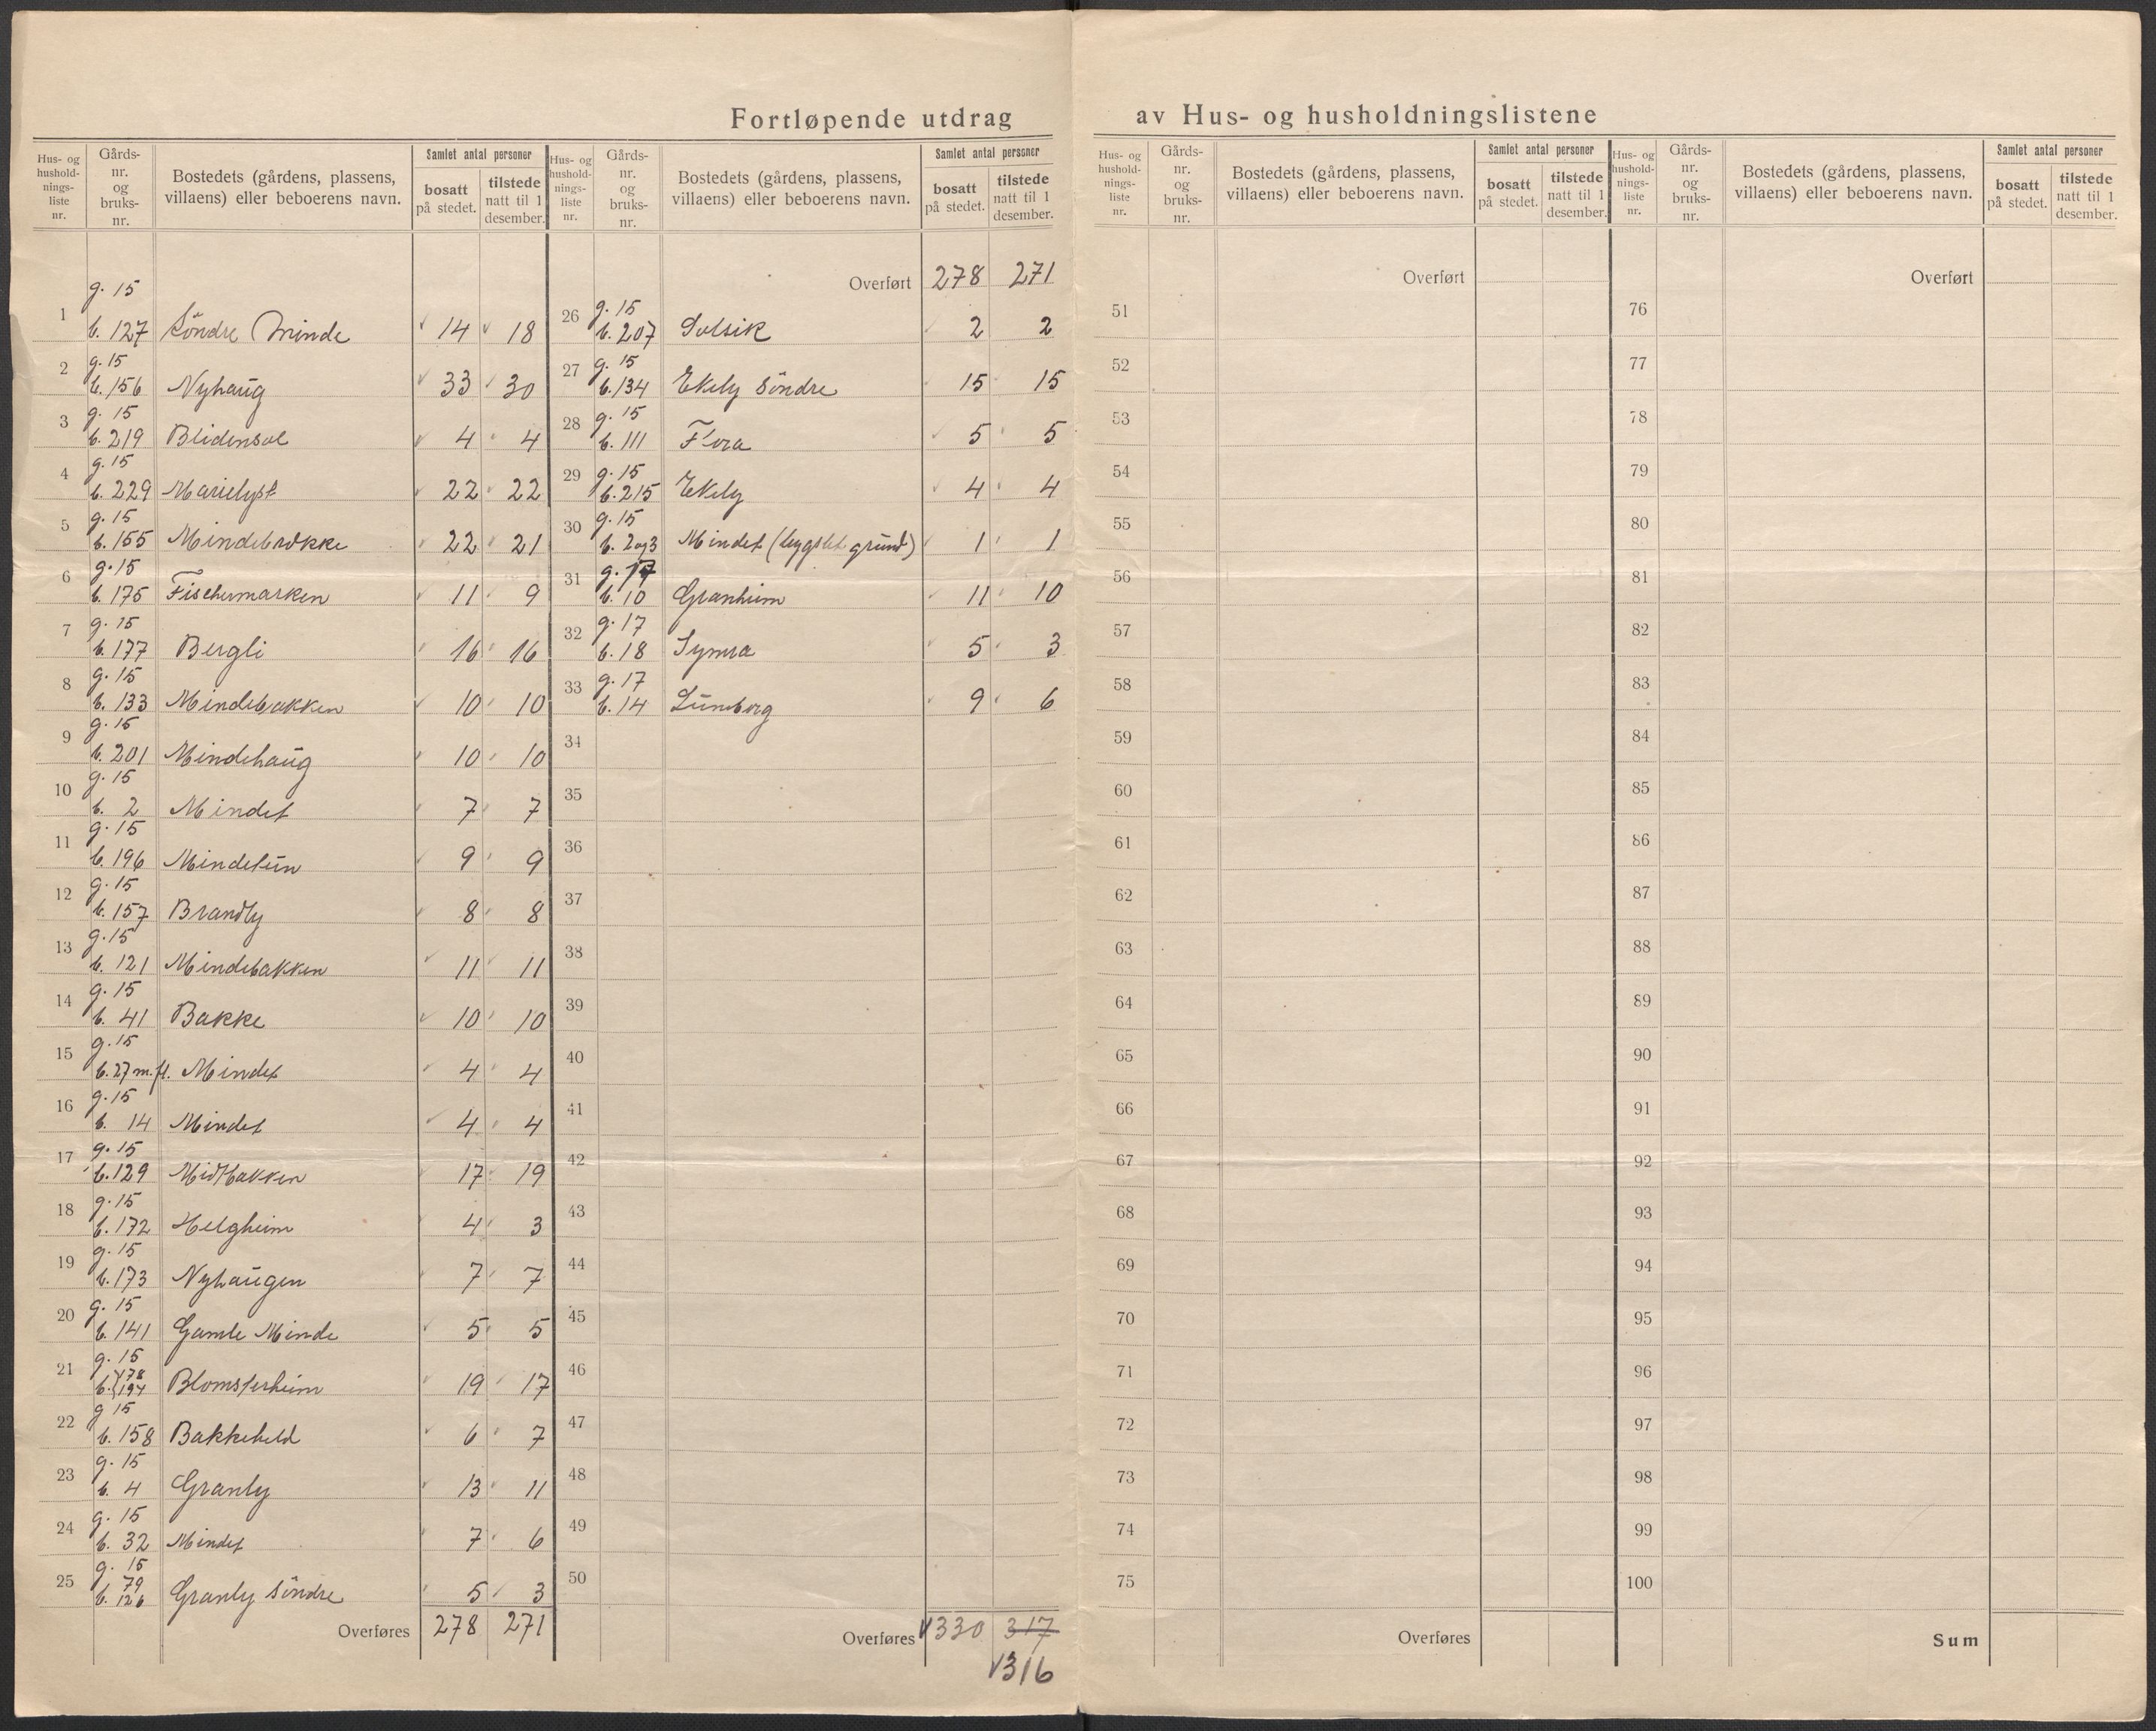 Fortløpende utdrag av Hus- og husholdningslistene
Hus- og husholdnings-liste nr. | Gårds-nr. og bruks-nr. | Bostedets (gårdens, plassens, villaens) eller beboerens navn. | Samlet antal personer | bosatt på stedet. | tilstede natt til 1 desember.
1 g. 15 b. 127 Söndre Minde 14 18
2 g. 15 b. 156 Nyhaug 33 30
3 g. 15 b. 219 Blidensol 4 4
4 g. 15 b. 229 Marielyst 22 22
5 g. 15 b. 155 Mindebrekke 22 21
6 g. 15 b. 175 Fischermarken 11 9
7 g. 15 b. 177 Bergli 16 16
8 g. 15 b. 133 Mindebakken 10 10
9 g. 15 b. 201 Mindehaug 10 10
10 g. 15 b. 2 Mindet 7 7
11 g. 15 b. 196 Mindetun 9 9
12 g. 15 b. 157 Brandly 8 8
13 g. 15 b. 121 Mindebakken 11 11
14 g. 15 b. 41 Bakke 10 10
15 g. 15 b. 27 m.fl. Mindet 4 4
16 g. 15 b. 14 Mindet 4 4
17 g. 15 b. 129 Midtbakken 17 19
18 g. 15 b. 172 Helgheim 4 3
19 g. 15 b. 173 Nyhaugen 7 7
20 g. 15 b. 141 Gamle Minde 5 5
21 g. 15 b. 178 194 Blomsterheim 19 17
22 g 15 b. 158 Bakkeheld 6 7
23 g. 15 b. 4 Granly 13 11
24 g. 15 b. 32 Mindet 7 6
25 g. 15 b. 79 126 Granly Söndre 5 3
Overføres 278 271
Hus- og husholdnings-liste nr. | Gårds-nr. og bruks-nr. | Bostedets (gårdens, plassens, villaens) eller beboerens navn. | Samlet antal personer | bosatt på stedet. | tilstede natt til 1 desember.
Overført 278 271
26 g. 15 b. 207 Solsik 2 2
27 g. 15 b. 134 Ekely Söndre 15 15
28 g. 15 b. 111 Flora 5 5
29 g. 15 b. 215 Ekely 4 4
30 g. 15 b. 2 og 3 Mindet (bygslet grund) 1 1
31 g. 17 b. 10 Granheim 11 10
32 g. 17 b. 18 Symra 5 3
33 g. 17 b. 14 Luneborg 9 6
34
35
36
37
38
39
40
41
42
43
44
45
46
47
48
49
50
Overføres 330 317
316
Hus- og husholdnings-liste nr. | Gårds-nr. og bruks-nr. | Bostedets (gårdens, plassens, villaens) eller beboerens navn. | Samlet antal personer | bosatt på stedet. | tilstede natt til 1 desember.
Overført
51
52
53
54
55
56
57
58
59
60
61
62
63
64
65
66
67
68
69
70
71
72
73
74
75
Overføres
Hus- og husholdnings-liste nr. | Gårds-nr. og bruks-nr. | Bostedets (gårdens, plassens, villaens) eller beboerens navn. | Samlet antal personer | bosatt på stedet. | tilstede natt til 1 desember.
Overført
76
77
78
79
80
81
82
83
84
85
86
87
88
89
90
91
92
93
94
95
96
97
98
99
100
Sum